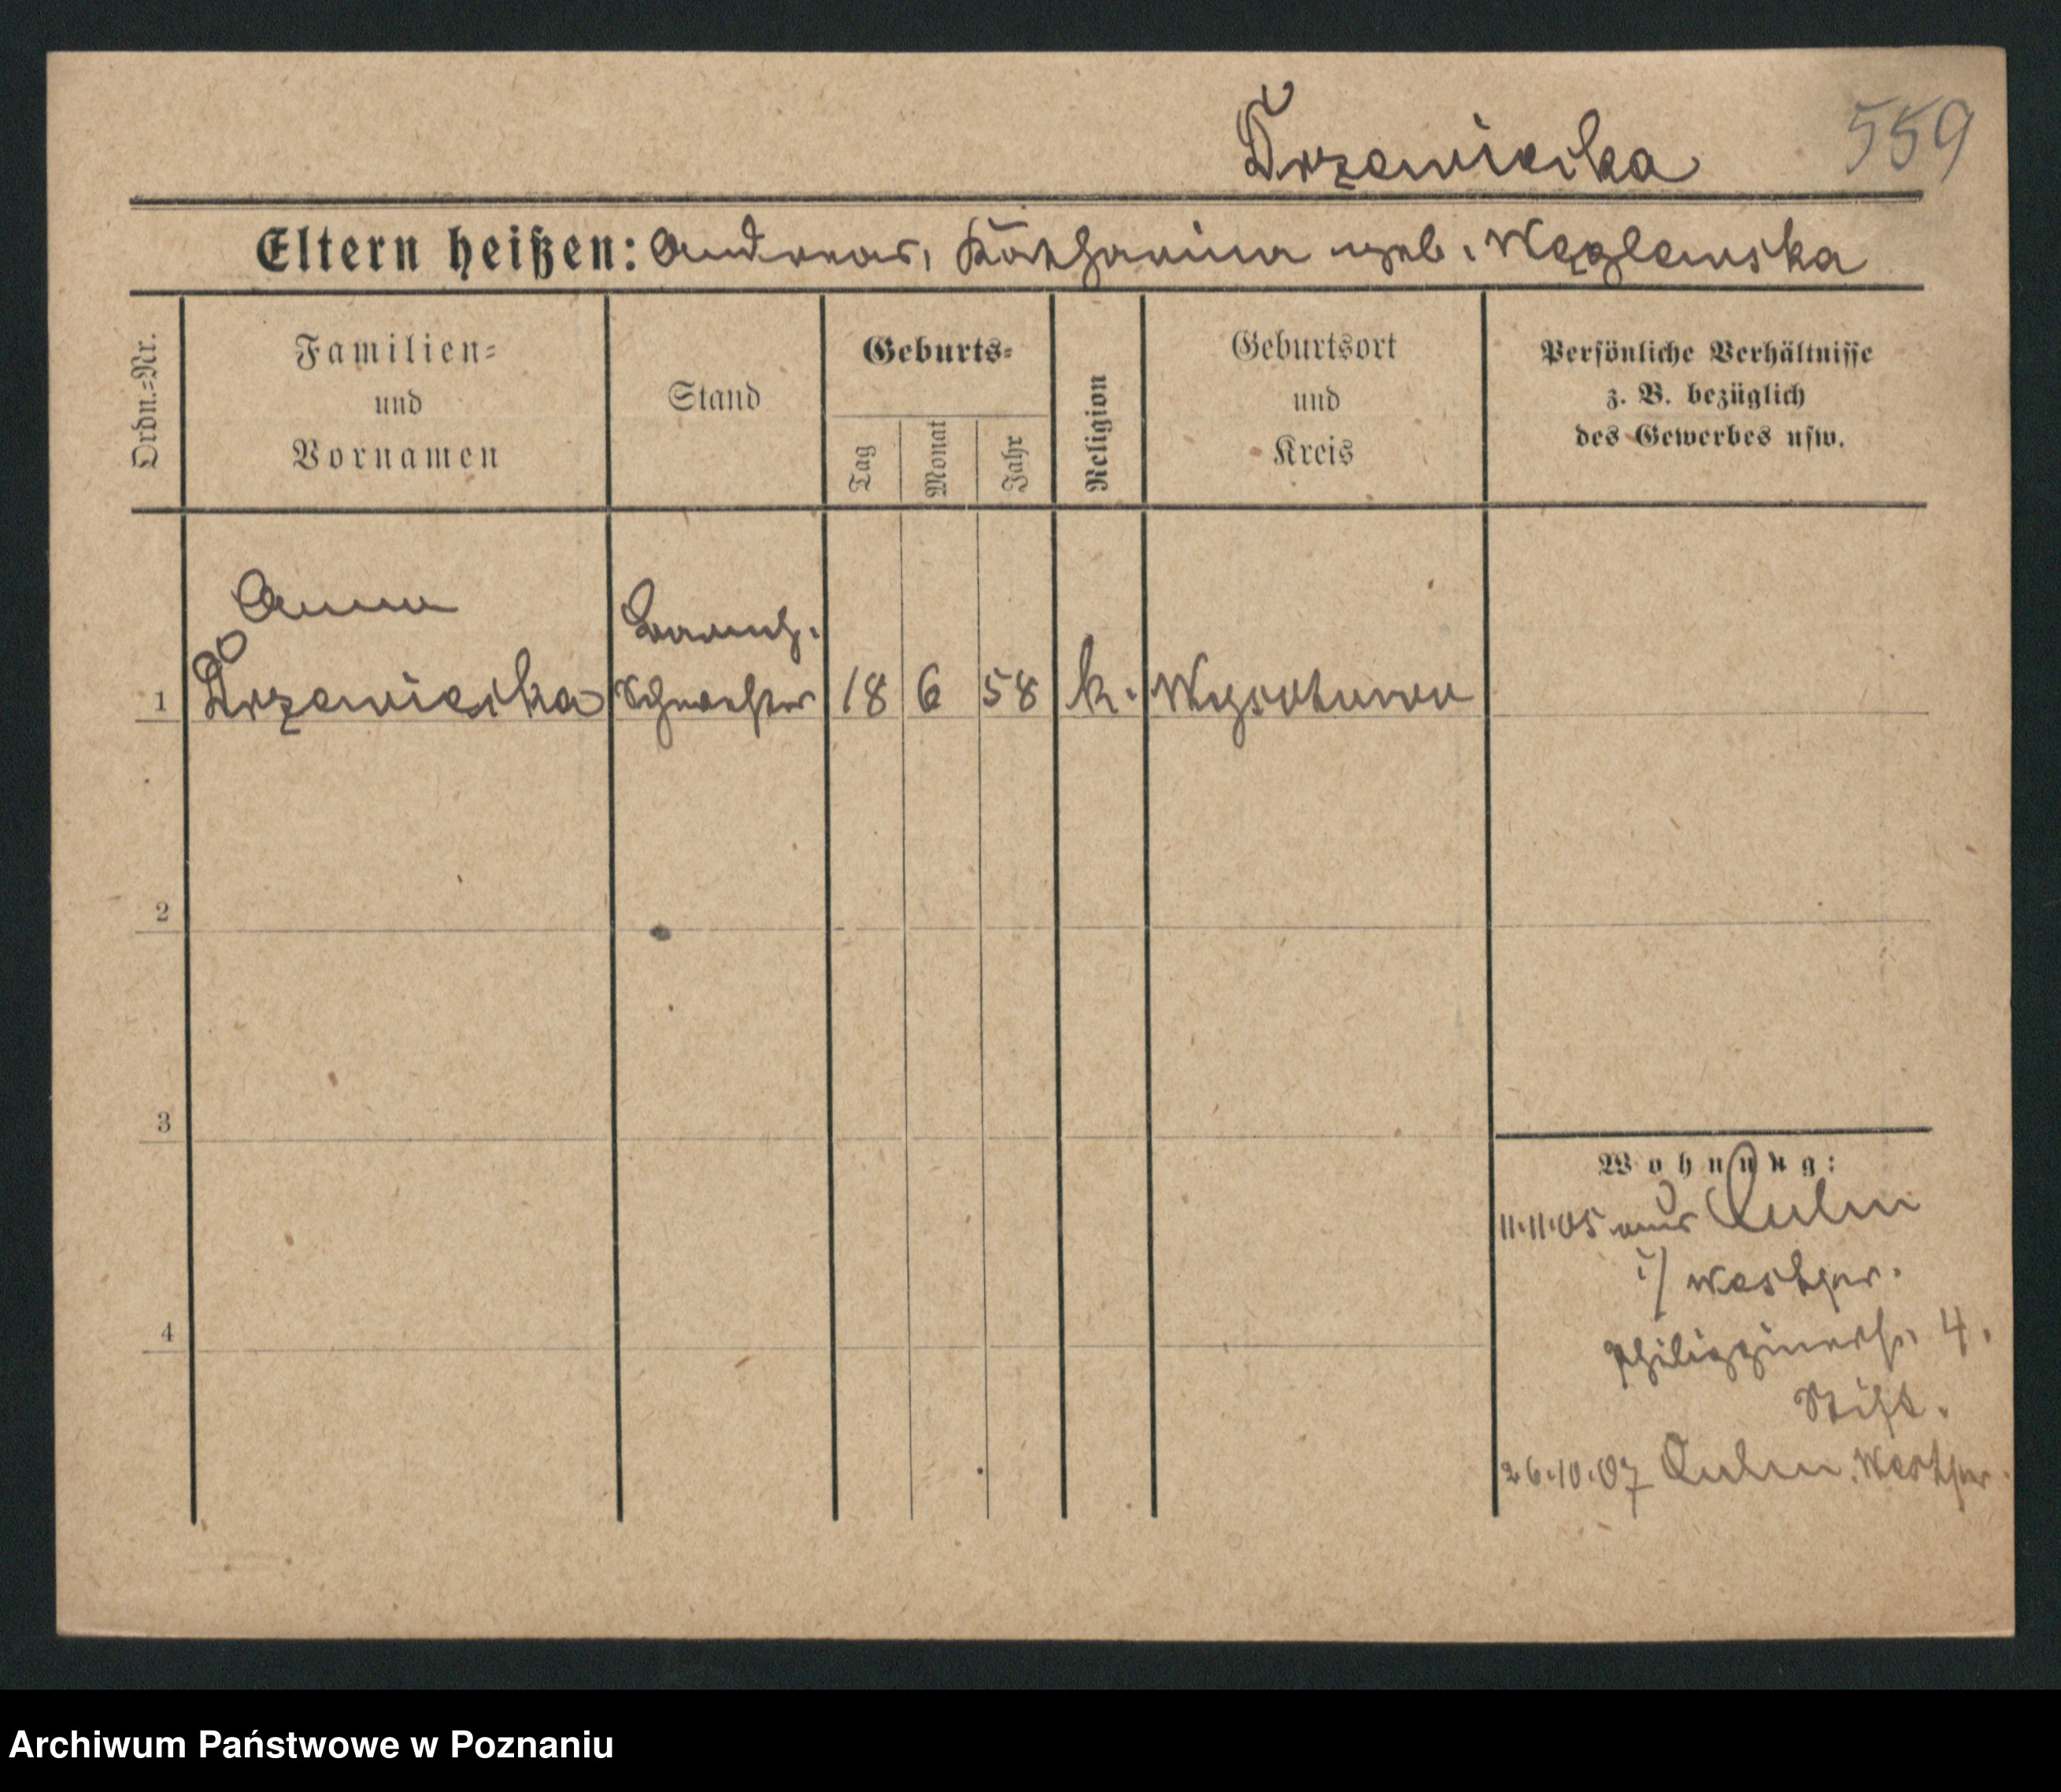 Drzewiecka 559
Eltern heißen: Andreas, Katharina geb. Węglewska
Ordn.-Nr.
Familien-
und
Vornamen
Stand
Geburts-
Tag
Monat
Jahr
Religion
Geburtsort
und
Kreis
Persönliche Verhältnisse
z. B. bezüglich
des Gewerbes usw.
Anna
Barmh.
1 Drzewiecka Schwester 18 6 58 k.
2
3
4
Wohnung:
11.11.05 aus Culm
i/ Westpr.
Philippinerstr. 4.
Stift.
26.10.07 Culm. Westpr.
Archiwum Państwowe w Poznaniu